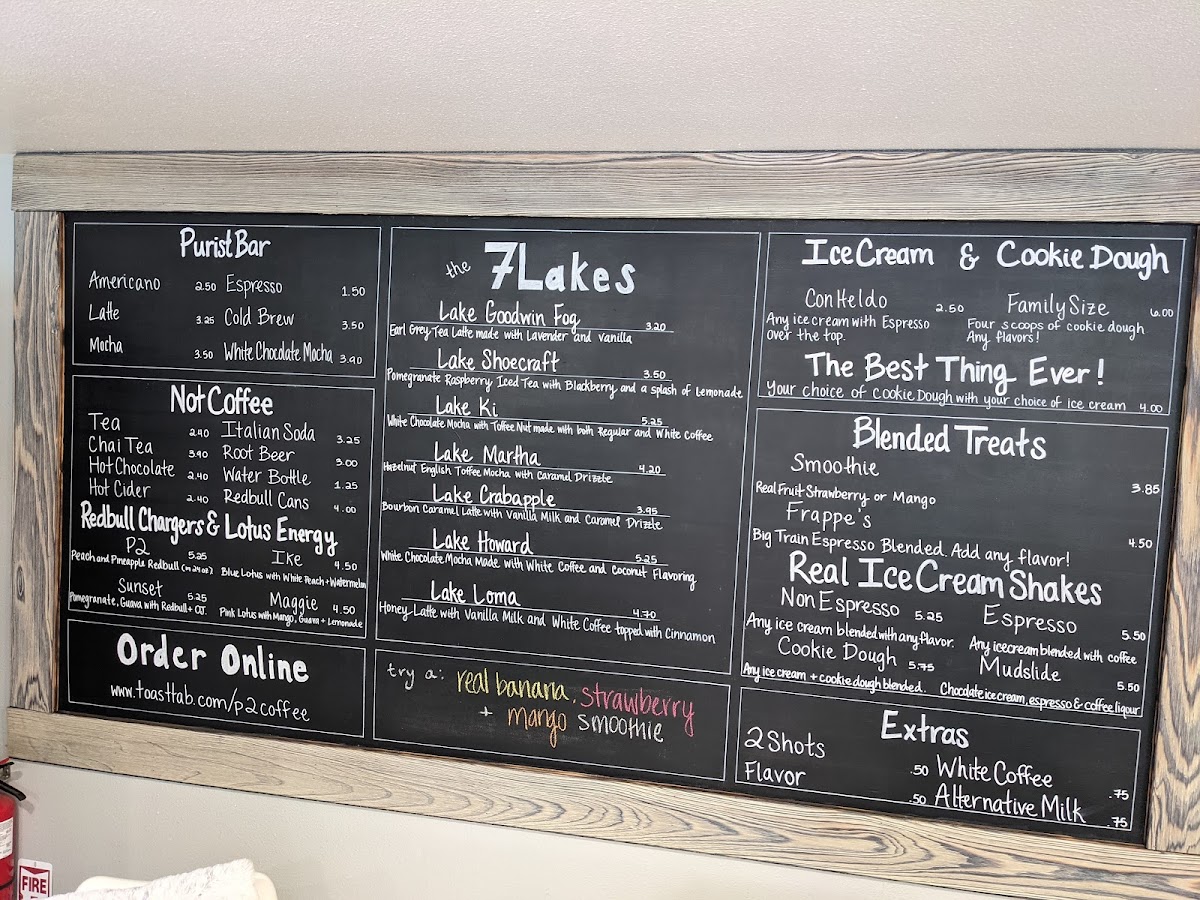 Purist Bar
Americano 2.50 Espresso 1.50
Latte 3.25 Cold Brew 3.50
Mocha 3.50 White Chocolate Mocha 3.90
Not Coffee
Tea 2.40 Italian Soda 3.25
Chai Tea 3.90 Root Beer 3.00
Hot Chocolate 2.40 Water Bottle 1.25
Hot Cider 2.40 Redbull Cans 4.00
Redbull Chargers & Lotus Energy
P2 5.25 Ike 4.50
Peach and Pineapple Redbull (in 24oz) Blue Lotus with White Peach + Watermelon
Sunset 5.25 Maggie 4.50
Pomegranate, Guava with Redbull + OJ. Pink Lotus with Mango, Guava + Lemonade
Order Online
www.toasttab.com/p2coffee
the 7Lakes
Lake Goodwin Fog 3.20
Earl Grey Tea Latte made with Lavender and Vanilla
Lake Shoecraft 3.50
Pomegranate Raspberry Iced Tea with Blackberry and a splash of Lemonade
Lake Ki 5.25
White Chocolate Mocha with Toffee Nut made with both Regular and White Coffee
Lake Martha 4.20
Hazelnut English Toffee Mocha with Caramel Drizzle
Lake Crabapple 3.95
Bourbon Caramel Latte with Vanilla Milk and Caramel Drizzle
Lake Howard 5.25
White Chocolate Mocha Made with White Coffee and Coconut Flavoring
Lake Loma 4.70
Honey Latte with Vanilla Milk and White Coffee topped with Cinnamon
try a: real banana, strawberry
+ mango smoothie
Ice Cream & Cookie Dough
Con Heldo 2.50 Family Size 6.00
Any ice cream with Espresso Four scoops of cookie dough
over the top. Any flavors!
The Best Thing Ever!
Your choice of Cookie Dough with your choice of ice cream 4.00
Blended Treats
Smoothie 3.85
Real Fruit Strawberry or Mango
Frappe's 4.50
Big Train Espresso Blended. Add any flavor!
Real Ice Cream Shakes
Non Espresso 5.25 Espresso 5.50
Any ice cream blended with any flavor. Any icecream blended with coffee
Cookie Dough 5.75 Mudslide 5.50
Any ice cream + cookie dough blended. Chocolate ice cream, espresso & coffee liqour
Extras
2 Shots .50 White Coffee .75
Flavor .50 Alternative Milk .75
FIRE